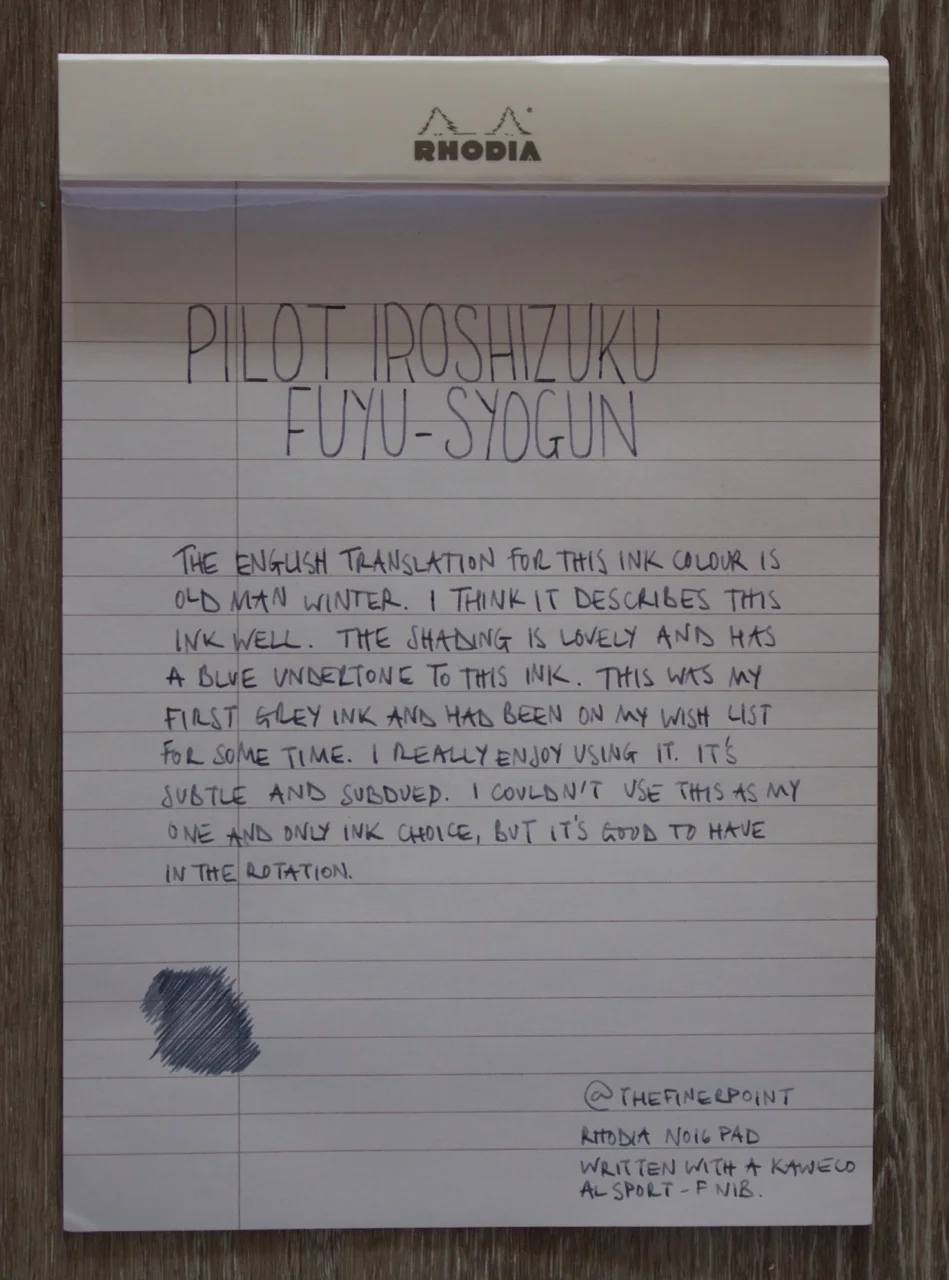 RHODIA
PILOT IROSHIZUKU
FUYU-SYOGUN
THE ENGLISH TRANSLATION FOR THIS INK COLOUR IS
OLD MAN WINTER. I THINK IT DESCRIBES THIS
INK WELL. THE SHADING IS LOVELY AND HAS
A BLUE UNDERTONE TO THIS INK. THIS WAS MY
FIRST GREY INK AND HAD BEEN ON MY WISH LIST
FOR SOME TIME. I REALLY ENJOY USING IT. IT'S
SUBTLE AND SUBDUED. I COULDN'T USE THIS AS MY
ONE AND ONLY INK CHOICE, BUT IT'S GOOD TO HAVE
IN THE ROTATION.
@THEFINERPOINT
RHODIA NO16 PAD
WRITTEN WITH A KAWECO
AL SPORT - F NIB.